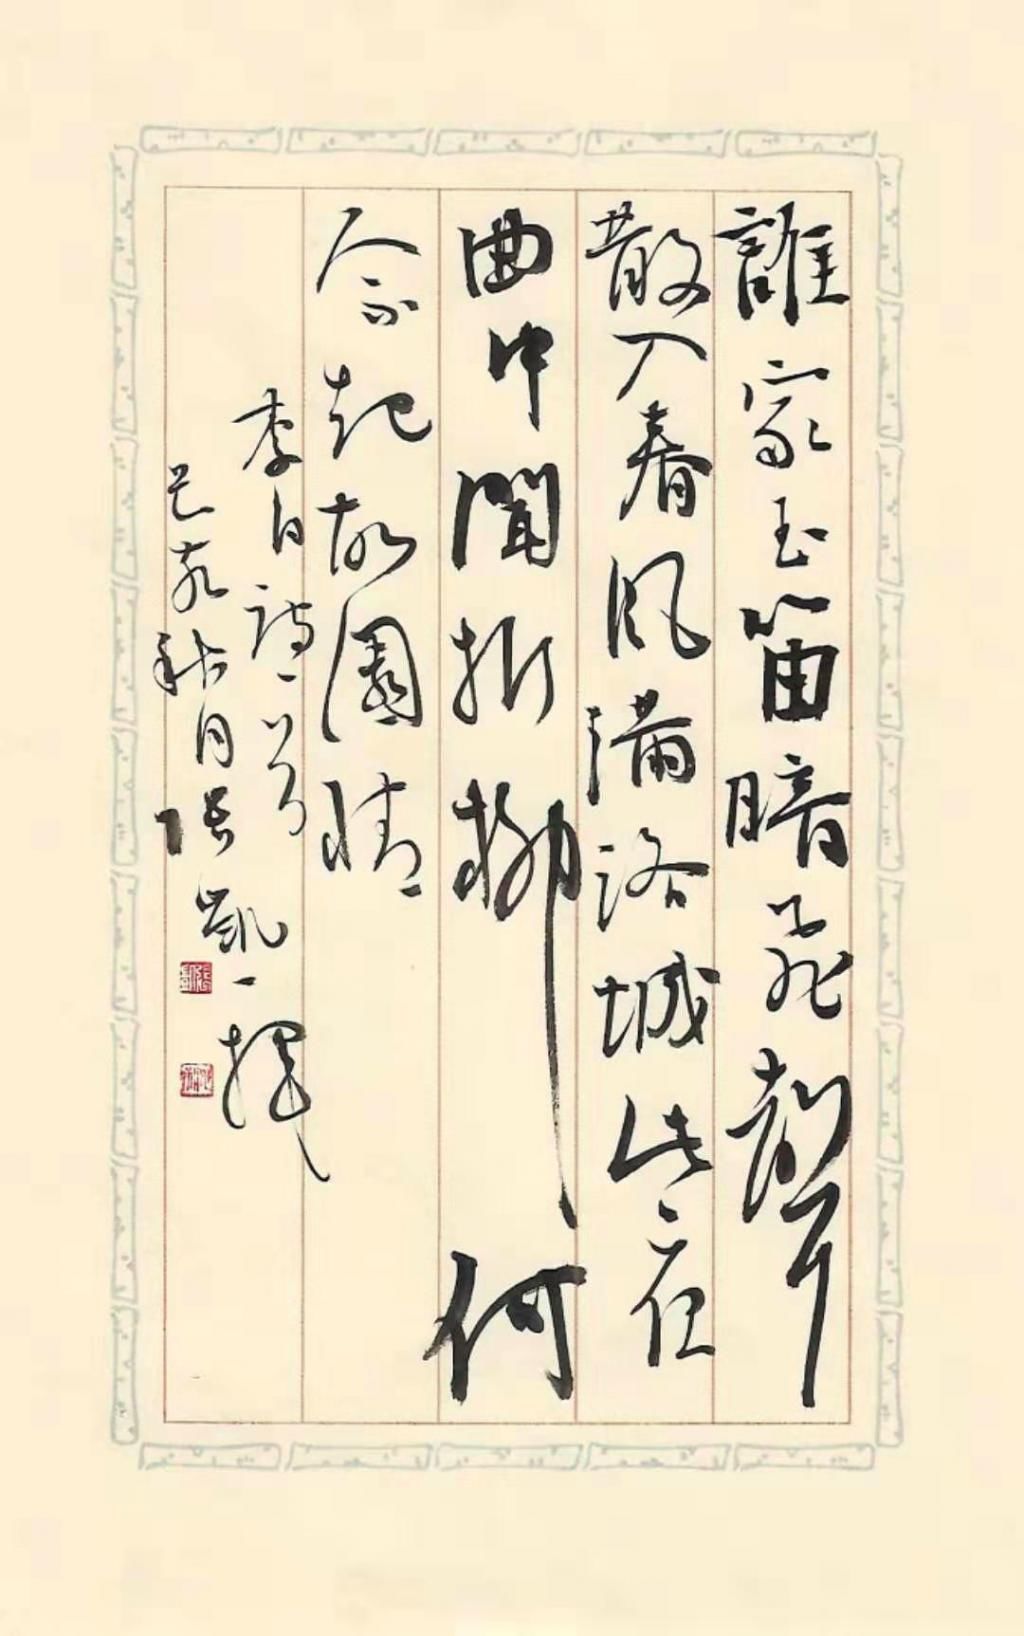 誰家玉笛暗飛聲
散入春風滿洛城此夜
曲中聞折柳何
人不起故園情
李白詩一首
己亥秋月張凱一揮